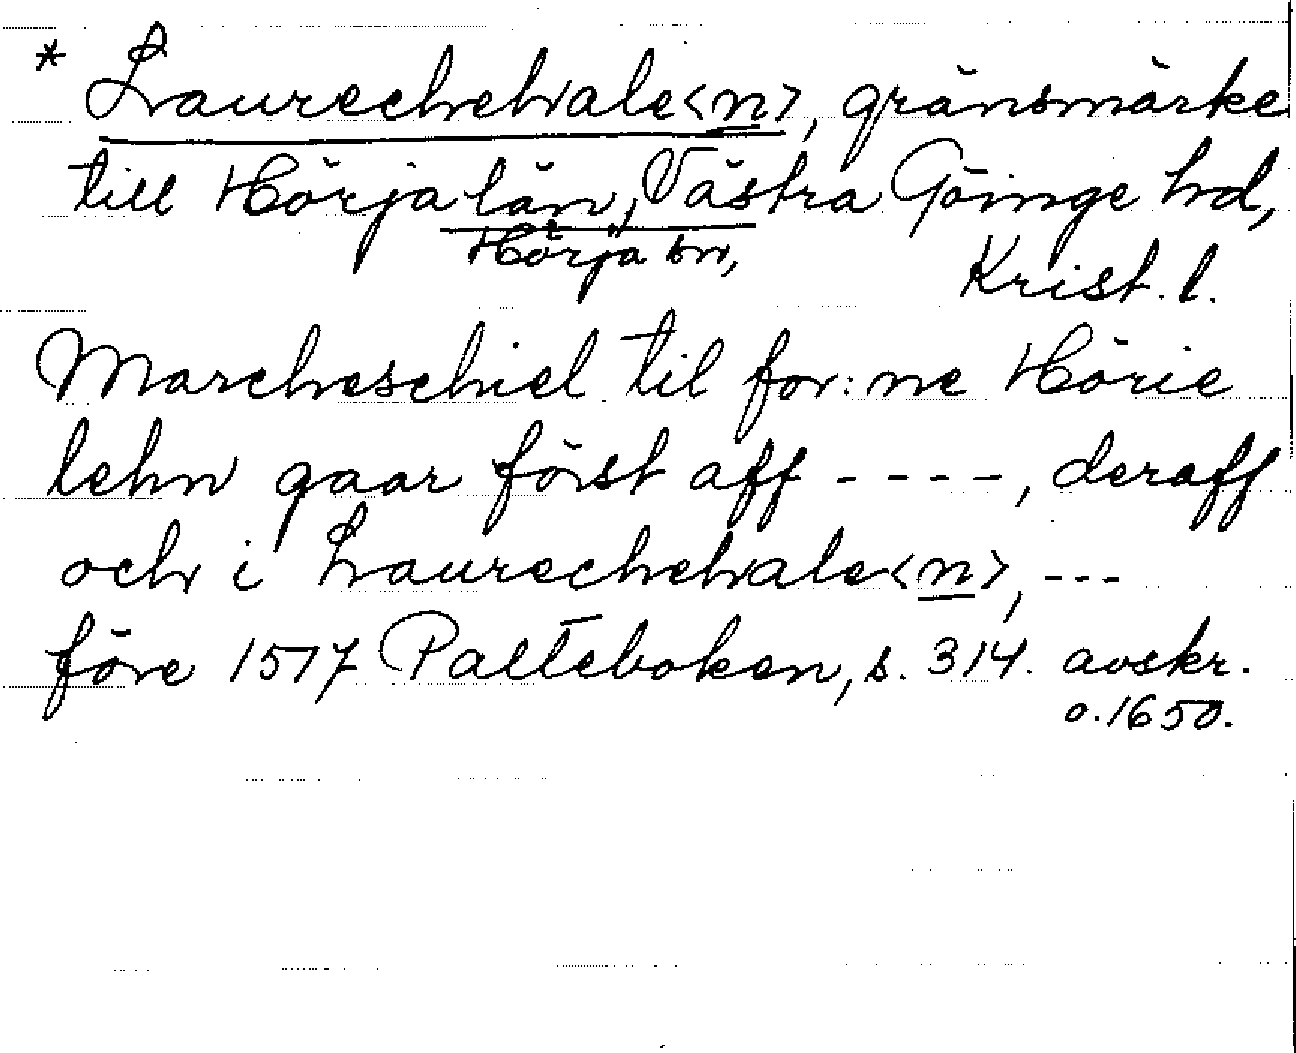 * Laurechehale<n>, gränsmärke
till Hörja län, Västra Göinge hd,
Hörja sn, Krist. l.
Marcheschiel til for:ne Hörie
lehn gaar först aff ----, deraff
och i Laurechehale<n>, ---
före 1517 Palteboken, s. 314. avskr.
o. 1650.